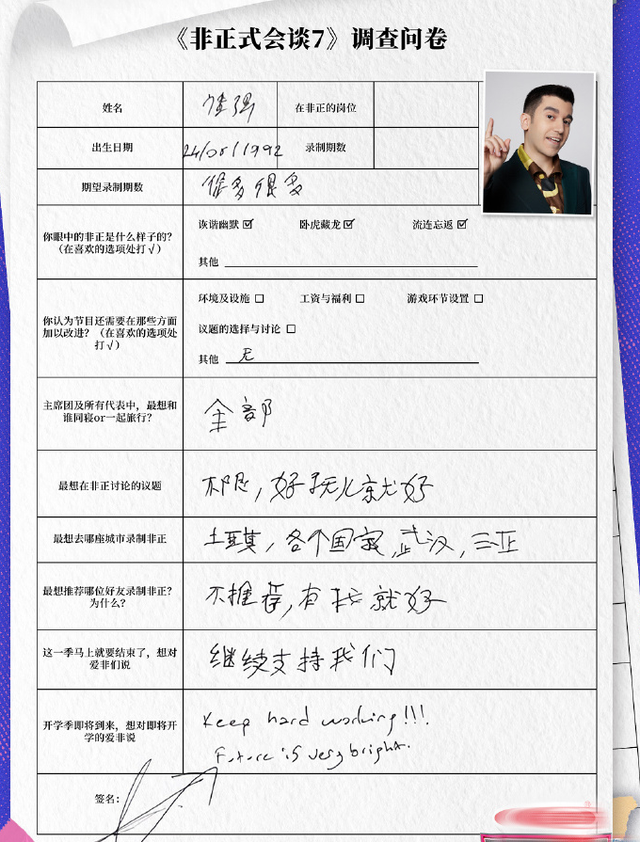 《非正式会谈7》调查问卷
姓名 唐强 在非正的岗位
出生日期 24/05/1992 录制期数
期望录制期数 很多很多
你眼中的非正是什么样子的？
（在喜欢的选项处打√）
诙谐幽默 ☑ 卧虎藏龙 ☑ 流连忘返 ☑
其他
你认为节目还需要在那些方面
加以改进？（在喜欢的选项处
打√）
环境及设施 □ 工资与福利 □ 游戏环节设置 □
议题的选择与讨论 □
其他 无
主席团及所有代表中，最想和
谁同寝or一起旅行？
全部
最想在非正讨论的议题
不限，好玩儿就好
最想去哪座城市录制非正
土耳其，各个国家，武汉，三亚
最想推荐哪位好友录制非正？
为什么？
不推荐，有我就好
这一季马上就要结束了，想对
爱非们说
继续支持我们
开学季即将到来，想对即将开
学的爱非说
Keep hard working!!!
Future is very bright.
签名：